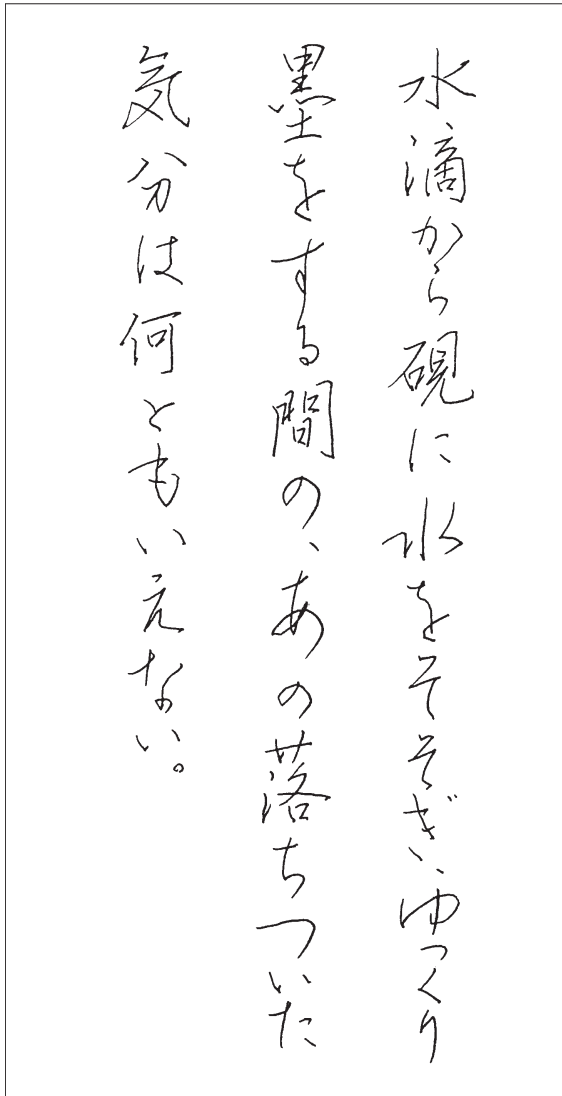 水滴から硯に水をそそぎ、ゆっくり
墨をする間の、あの落ちついた
気分は何ともいえない。